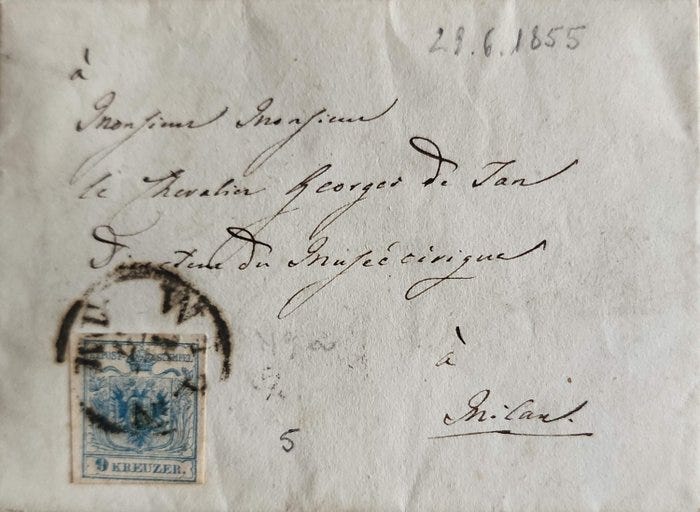 28.6.1855
à
Monsieur Monsieur
le Chevalier Georges de Jan
Directeur du Musée civique
à
Milan.
K.K.POST-STEMPEL
9 KREUZER.
WIEN
5